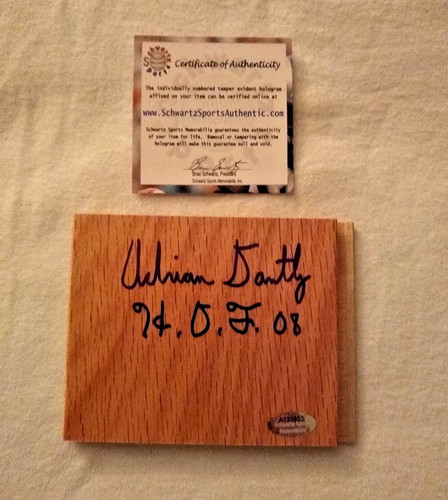 Schwartz
Sports
Certificate of Authenticity
The individually numbered tamper evident hologram
affixed on your item can be verified online at
www.SchwartzSportsAuthentic.com
Schwartz Sports Memorabilia guarantees the authenticity
of your item for life. Removal or tampering with the
hologram will make this guarantee null and void.
Brian Schwartz, President
Schwartz Sports Memorabilia, Inc.
Adrian Dantley
H.O.F. 08
Schwartz Sports
Memorabilia